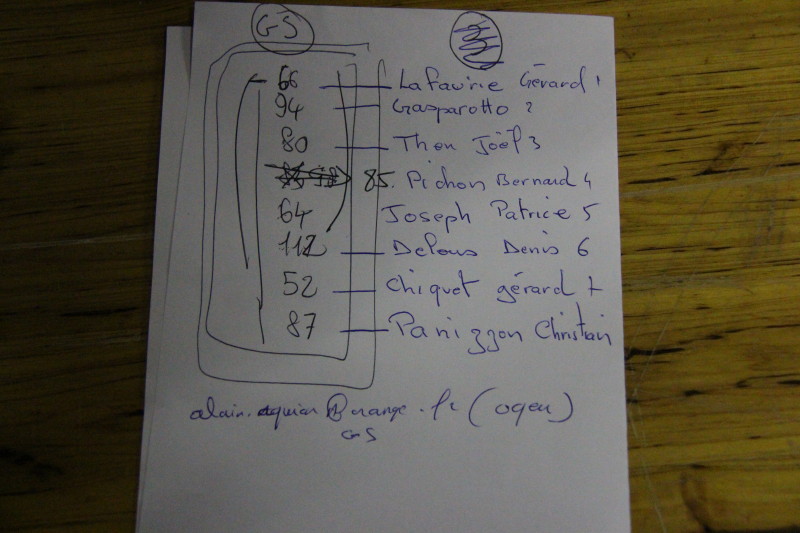 GS
66 Lafaurie Gérard 1
94 Gasparotto 2
80 Thon Joël 3
85. Pichon Bernard 4
64 Joseph Patrice 5
112 Delous Denis 6
52 Chiquet gérard 7
87 Panizzon Christian
alain. @orange.fr (ogeu)
GS